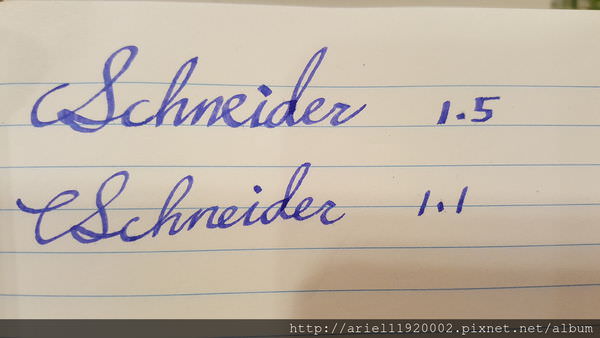 Schneider 1.5
Schneider 1.1
http://ariel11920002.pixnet.net/album